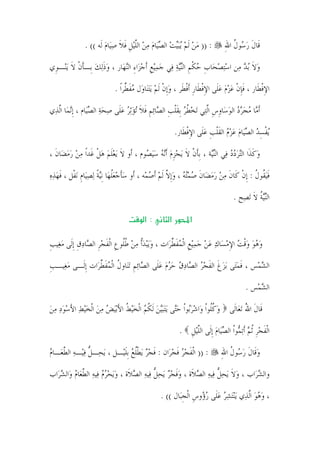 قَالَ رَسُولُ اللهِ ﷺ : (( مَنْ لَمْ يُبَيِّتْ الصِّيَامَ مِنْ اللَّيْلِ فَلَا صِيَامَ لَه )) .
وَلاَ بُدَّ مِن اسْتِصْحَابِ حُكْمِ النِّيَّةِ فِي جَمِيْعِ أَجْزَاءِ النَّهَارِ ، وَذَلِكَ بِـأَنْ لاَ يَنْــوِي
الإِفْطَارِ ، فَإِنْ عَزْمَ عَلَى الإِفْطَارِ أَفْطَرَ ، وَإِنْ لَمْ يَتَنَاوَلَ مُفَطِّراً .
أَمَّا مُجْرَّدُ الوَسَاوِسِ الَّتِي تَخْطُرُ بِقَلْبِ الصَّائِمِ فَلاَ تُؤَثِّرُ عَلَى صِحَةِ الصِّيَام ، إِنَّمَا الَّذِي
يُفْسِدُ الصِّيَامَ عَزْمُ القَلْبِ عَلَى الإِفْطَارِ.
وَكَذَا التَّرَدُّدُ فِي النِّيَّة ، بِأَنْ لاَ يَجْزِمَ أَنَّهُ سَيَصُوم ، أو لاَ يَعْلَمَ هَلْ غَداً مِنْ رَمَضَانَ ،
فَيَقُولُ : إِنْ كَانَ مِنْ رَمَضَانَ صُمْتُهُ ، وَإِلاَّ لَمْ أَصُمْهُ ، أو سَأَجْعَلُهَا نِيَّةً لِصِيَامِ نَفْلٍ ، فَهَذِهِ
النِّيَّةُ لاَ تَصِح .
المحور الثاني : الوقت
وَهُوَ وَقْتُ الإِمْسَاكِ عَنْ جَمِيْعِ الْمُفَطِّرَات ، وَيَبْدَأُ مِنْ طُلُوعِ الفَجْرِ الصَادِقِ إِلَى مَغِيبِ
الشَّمْس ، فَمَتَى بَزَغَ الفَجْرُ الصَادِقُ حَرُمَ عَلَى الصَّائِمِ تَنَاوُلُ الْمُفَطِّرَاتِ إِلَـــى مَغِيـــبِ
الشَّمْسِ .
قَالَ اللهُ تَعَالَى ﴿ وَكُلُواْ وَاشْرَبُواْ حَتَّى يَتَبَيَّنَ لَكُمُ الْخَيْطُ الأَبْيَضُ مِنَ الْخَيْطِ الأَسْوَدِ مِنَ
الْفَجْرِ ثُمَّ أَتِمُّواْ الصِّيَامَ إِلَى اللَّيْلِ ﴾ .
وَقَالَ رَسُولُ اللهِ ﷺ : (( الْفَجْرُ فَجْرَان : فَجْرٌ يُطْلُعُ بِلَيْـــلٍ ، يَحِــلُّ فِيْـــهِ الطَّعَــامُ
والشَّرَاب ، وَلاَ يَحِلُّ فِيهِ الصَّلاَة ، وَفَجْرٌ يَحِلُّ فِيهِ الصَّلاَة ، وَيَحْرُمُ فِيهِ الطَّعَامُ وَالشَّرَاب
، وَهُوَ الَّذِي يَنْتَشِرُ عَلَى رُؤُوسِ الْجِبَال )) .